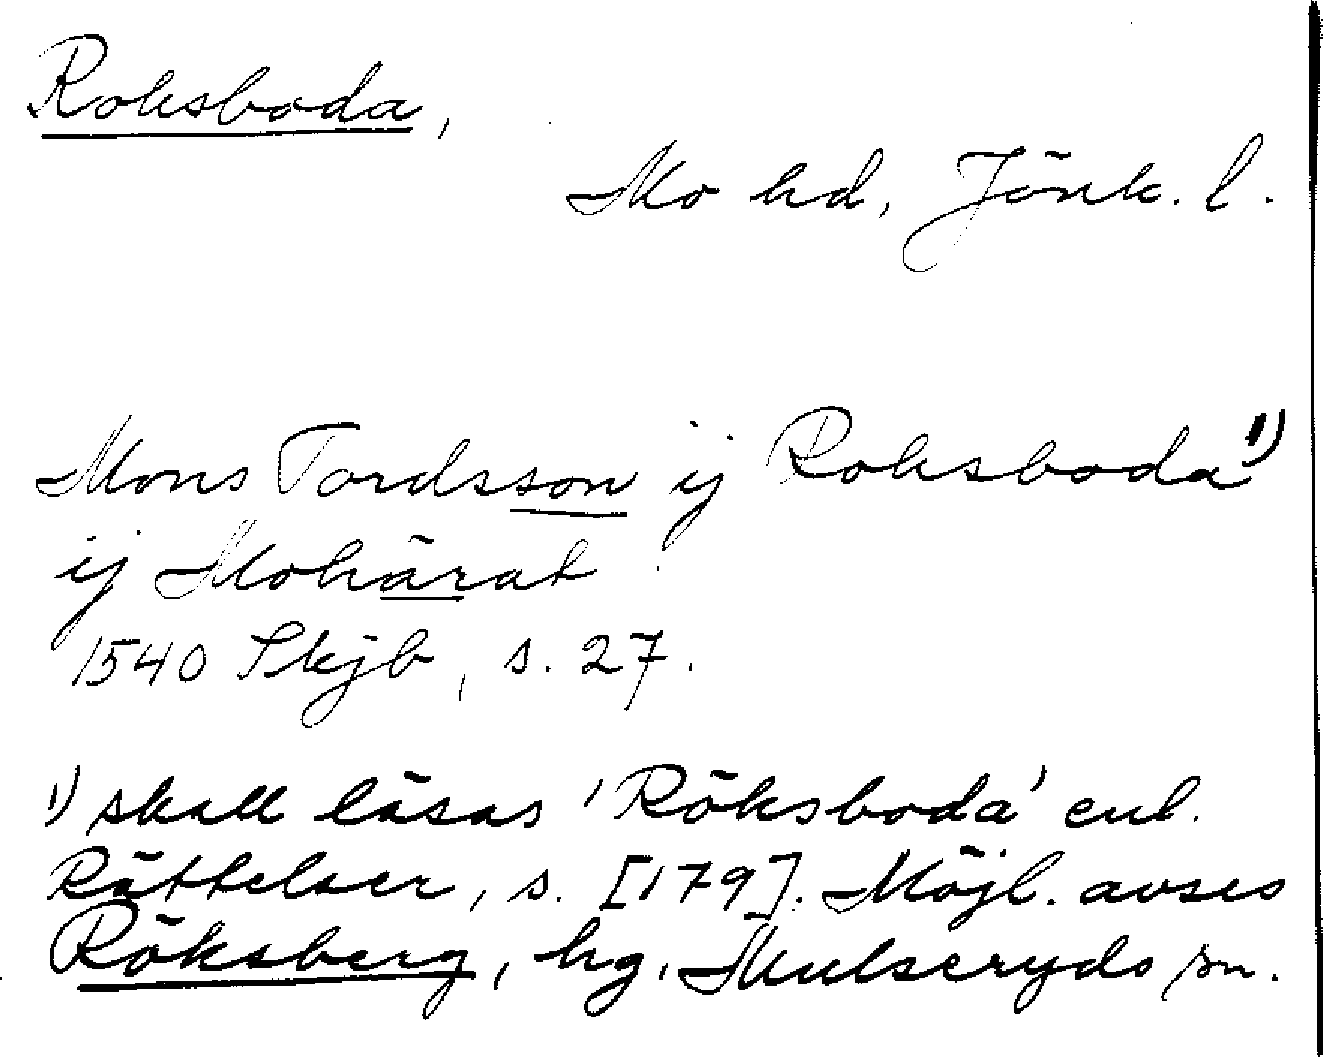 Roksboda,
Mo hd, Jönk. l.
Mons Tordsson ij Roksboda 1)
ij Mohärat
1540 Skjb, s. 27.
1) skall läsas 'Röksboda' enl.
Rättelser, s. [179]. Möjl. avses
Röksberg, hg, Mulseryds sn.